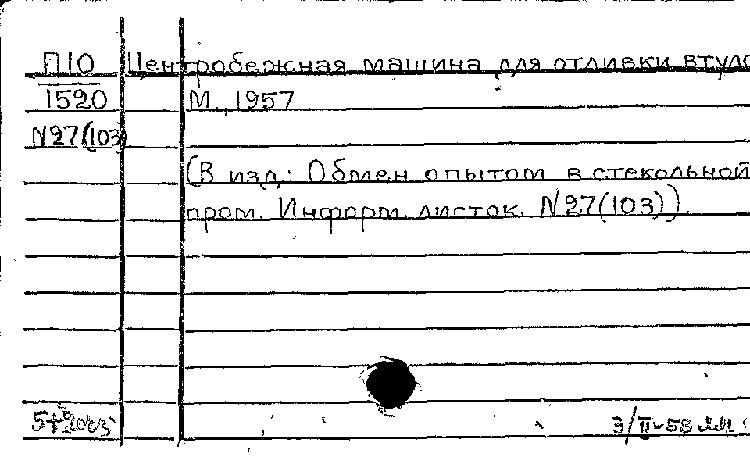 П10 Центробежная машина для отливки втуло
1520 М., 1957
N27(103)
(В изд.: Обмен опытом в стекольной
пром. Информ. листок. N27(103))
3/II-58